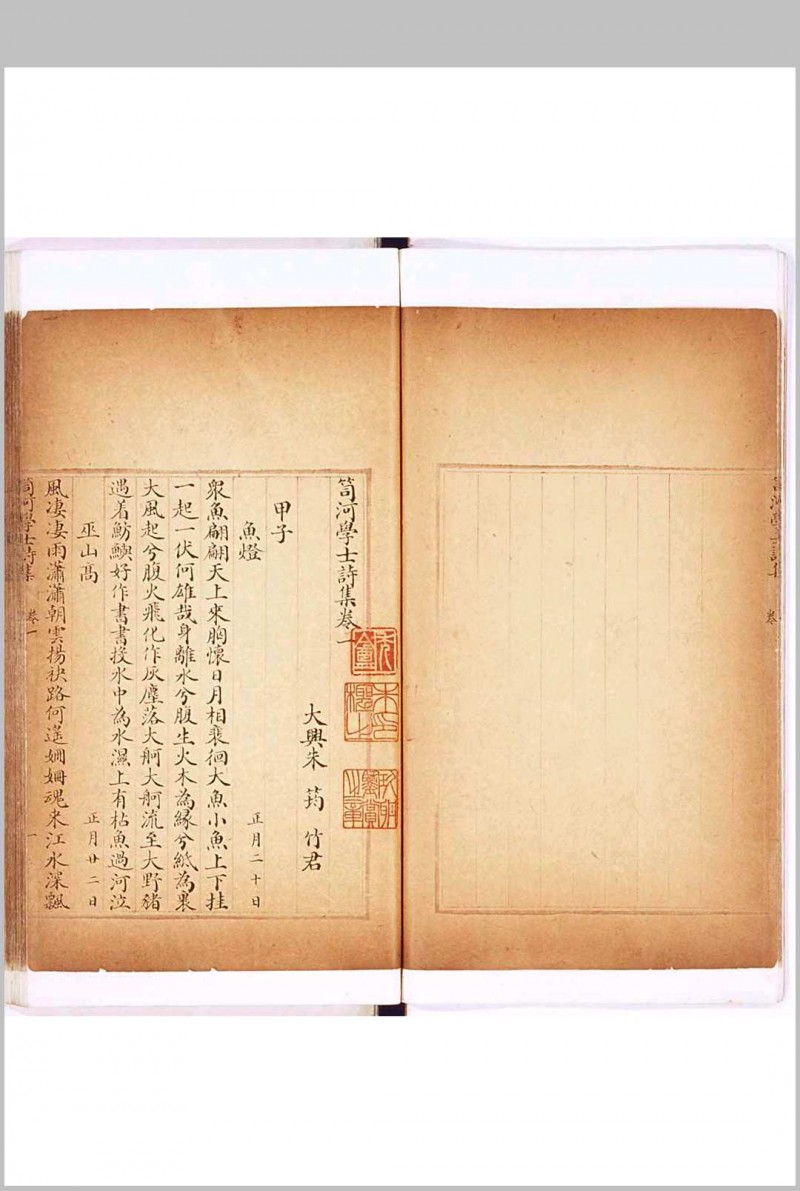 笥河學士詩集卷一
大興朱筠竹君
甲子
魚燈 正月二十日
衆魚翩翩天上來胸懷日月相裴徊大魚小魚上下挂
一起一伏何雄哉身離水兮腹生火木為緣兮紙為裹
大風起兮腹火飛化作灰塵落大舸大舸流至大野豬
遇着魴鱮好作書書投水中為水濕上有枯魚過河泣
巫山高 正月廿二日
風凄凄雨瀟瀟朝雲揚袂路何遥姍姍魂來江水深飄
笥河學士詩集 卷一 一